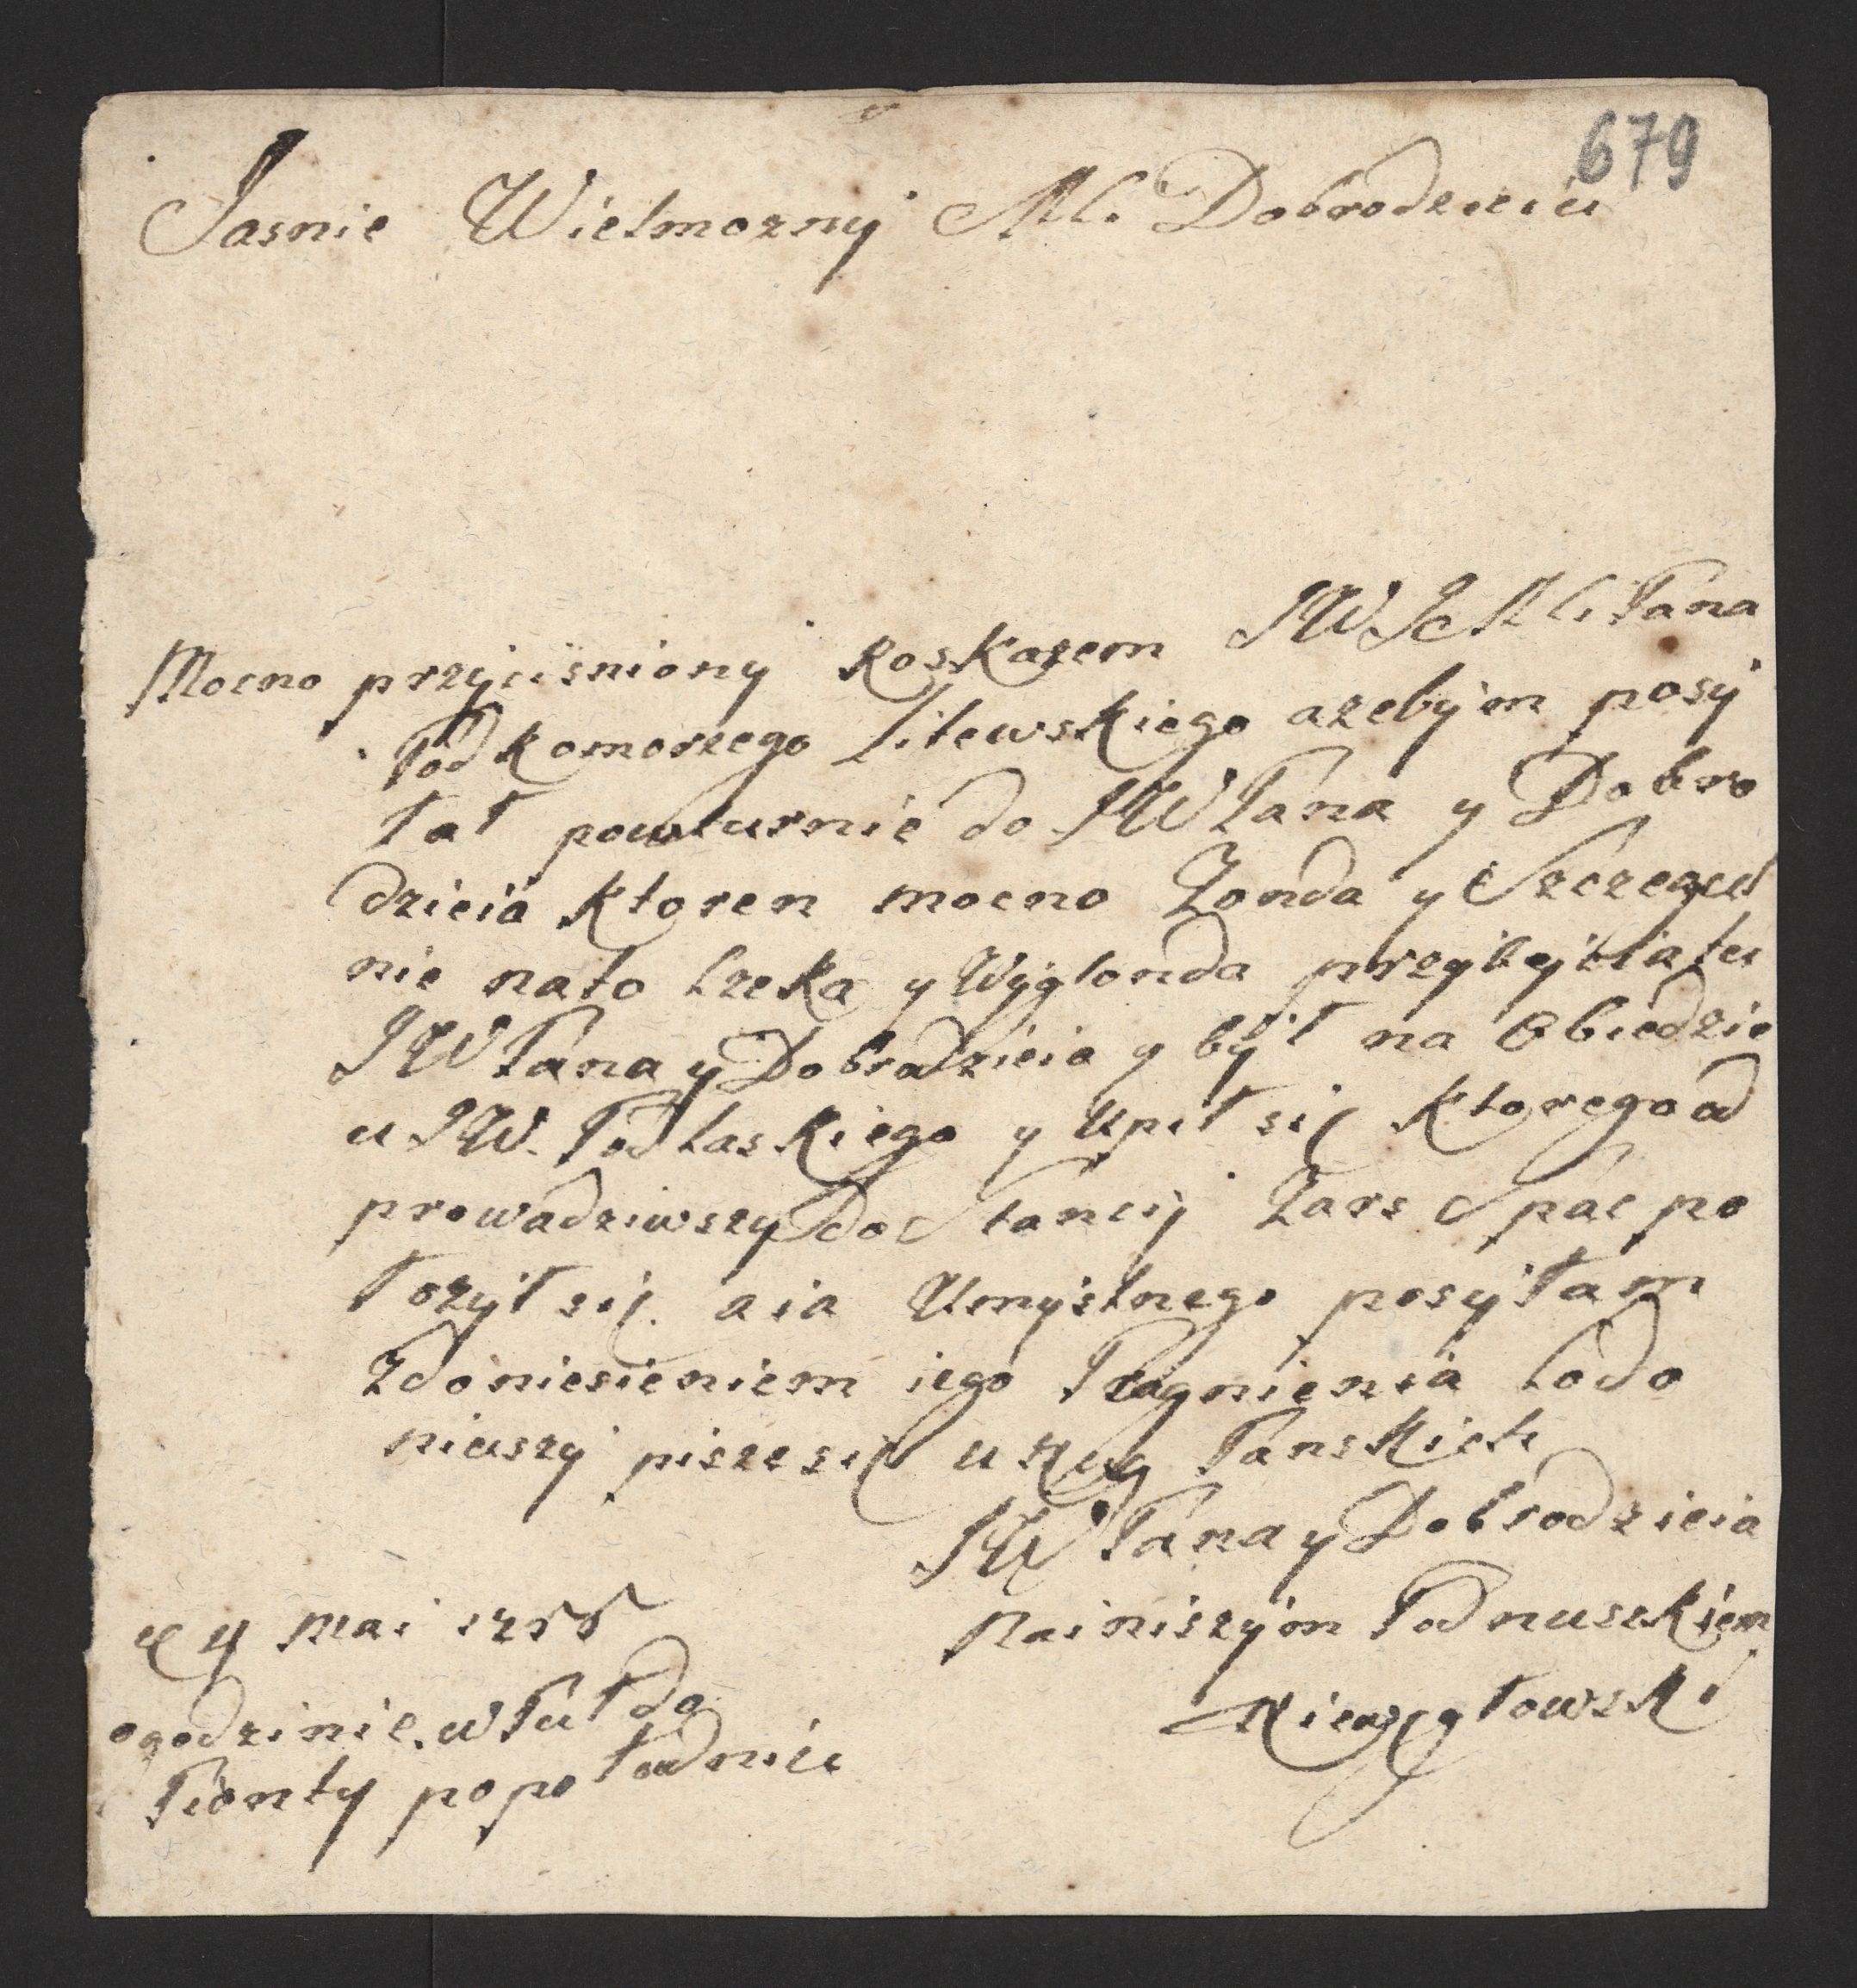 679
Jasnie Wielmozny Mci Dobrodzieiu
Mocno przycisniony Roskazem JWJcMci Pana
Podkomorzego Litewskiego azebym posy
łał powturnie do JWPana y Dobro
dzieia ktoren mocno Zonda y Szczegul
nie nato Czeka y Wyglonda przybycia tu
JWPana y Dobrodzieia y był na Obiedzie
u JW. Podlaskiego y upił się ktorego od
prowadziwszy do Stancij Zars Spac po
łozył się. a ia Umyslnego posyłam
Zdoniesieniem iego Pragnienia to do
niuszy pisze się usług Panskich
JWPana y Dobrodzieia
Nainiszym Podnuszkiem
4 Mai
ogodzinie. w Puł do
Pionty popołudniu